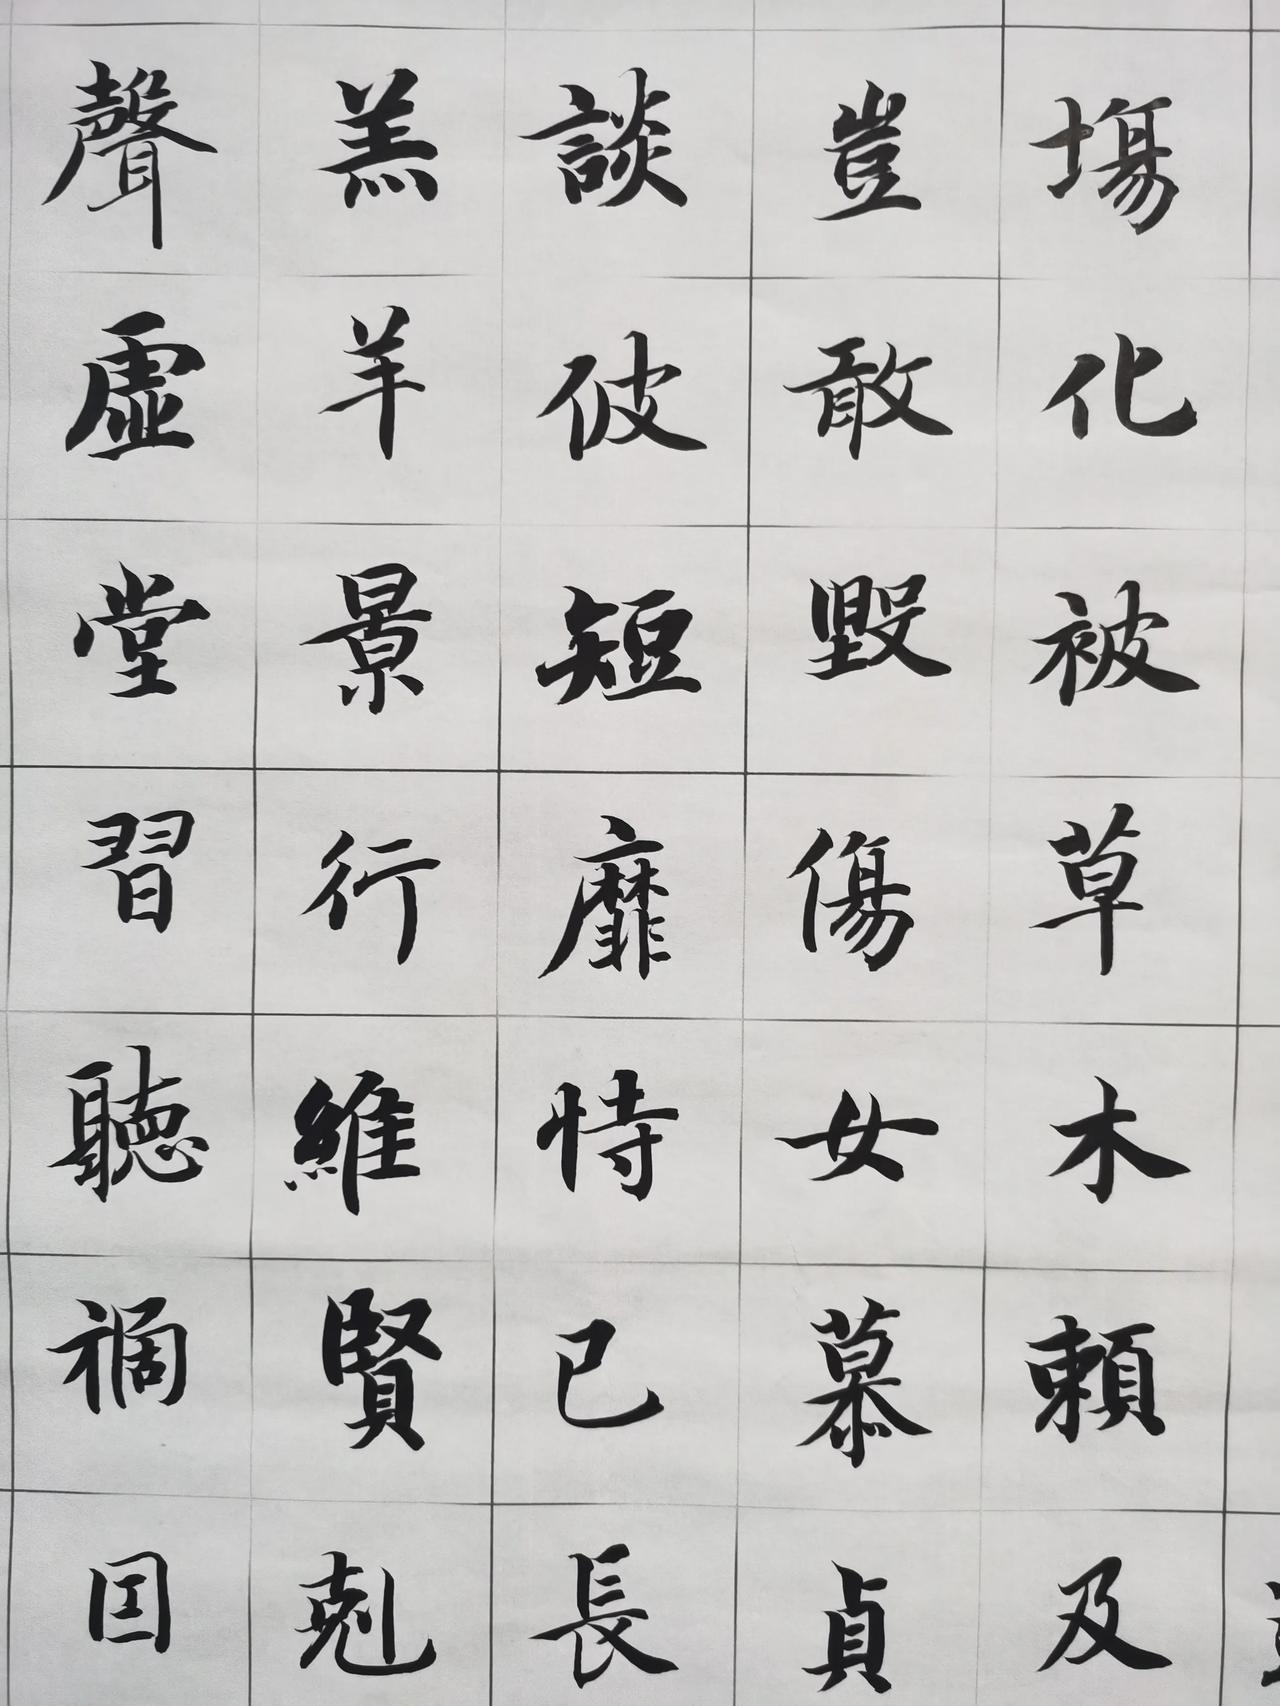 塲化被草木賴及
豈敢毀傷女慕貞
談彼短靡恃己長
羔羊景行維賢剋
聲虛堂習聽禍因